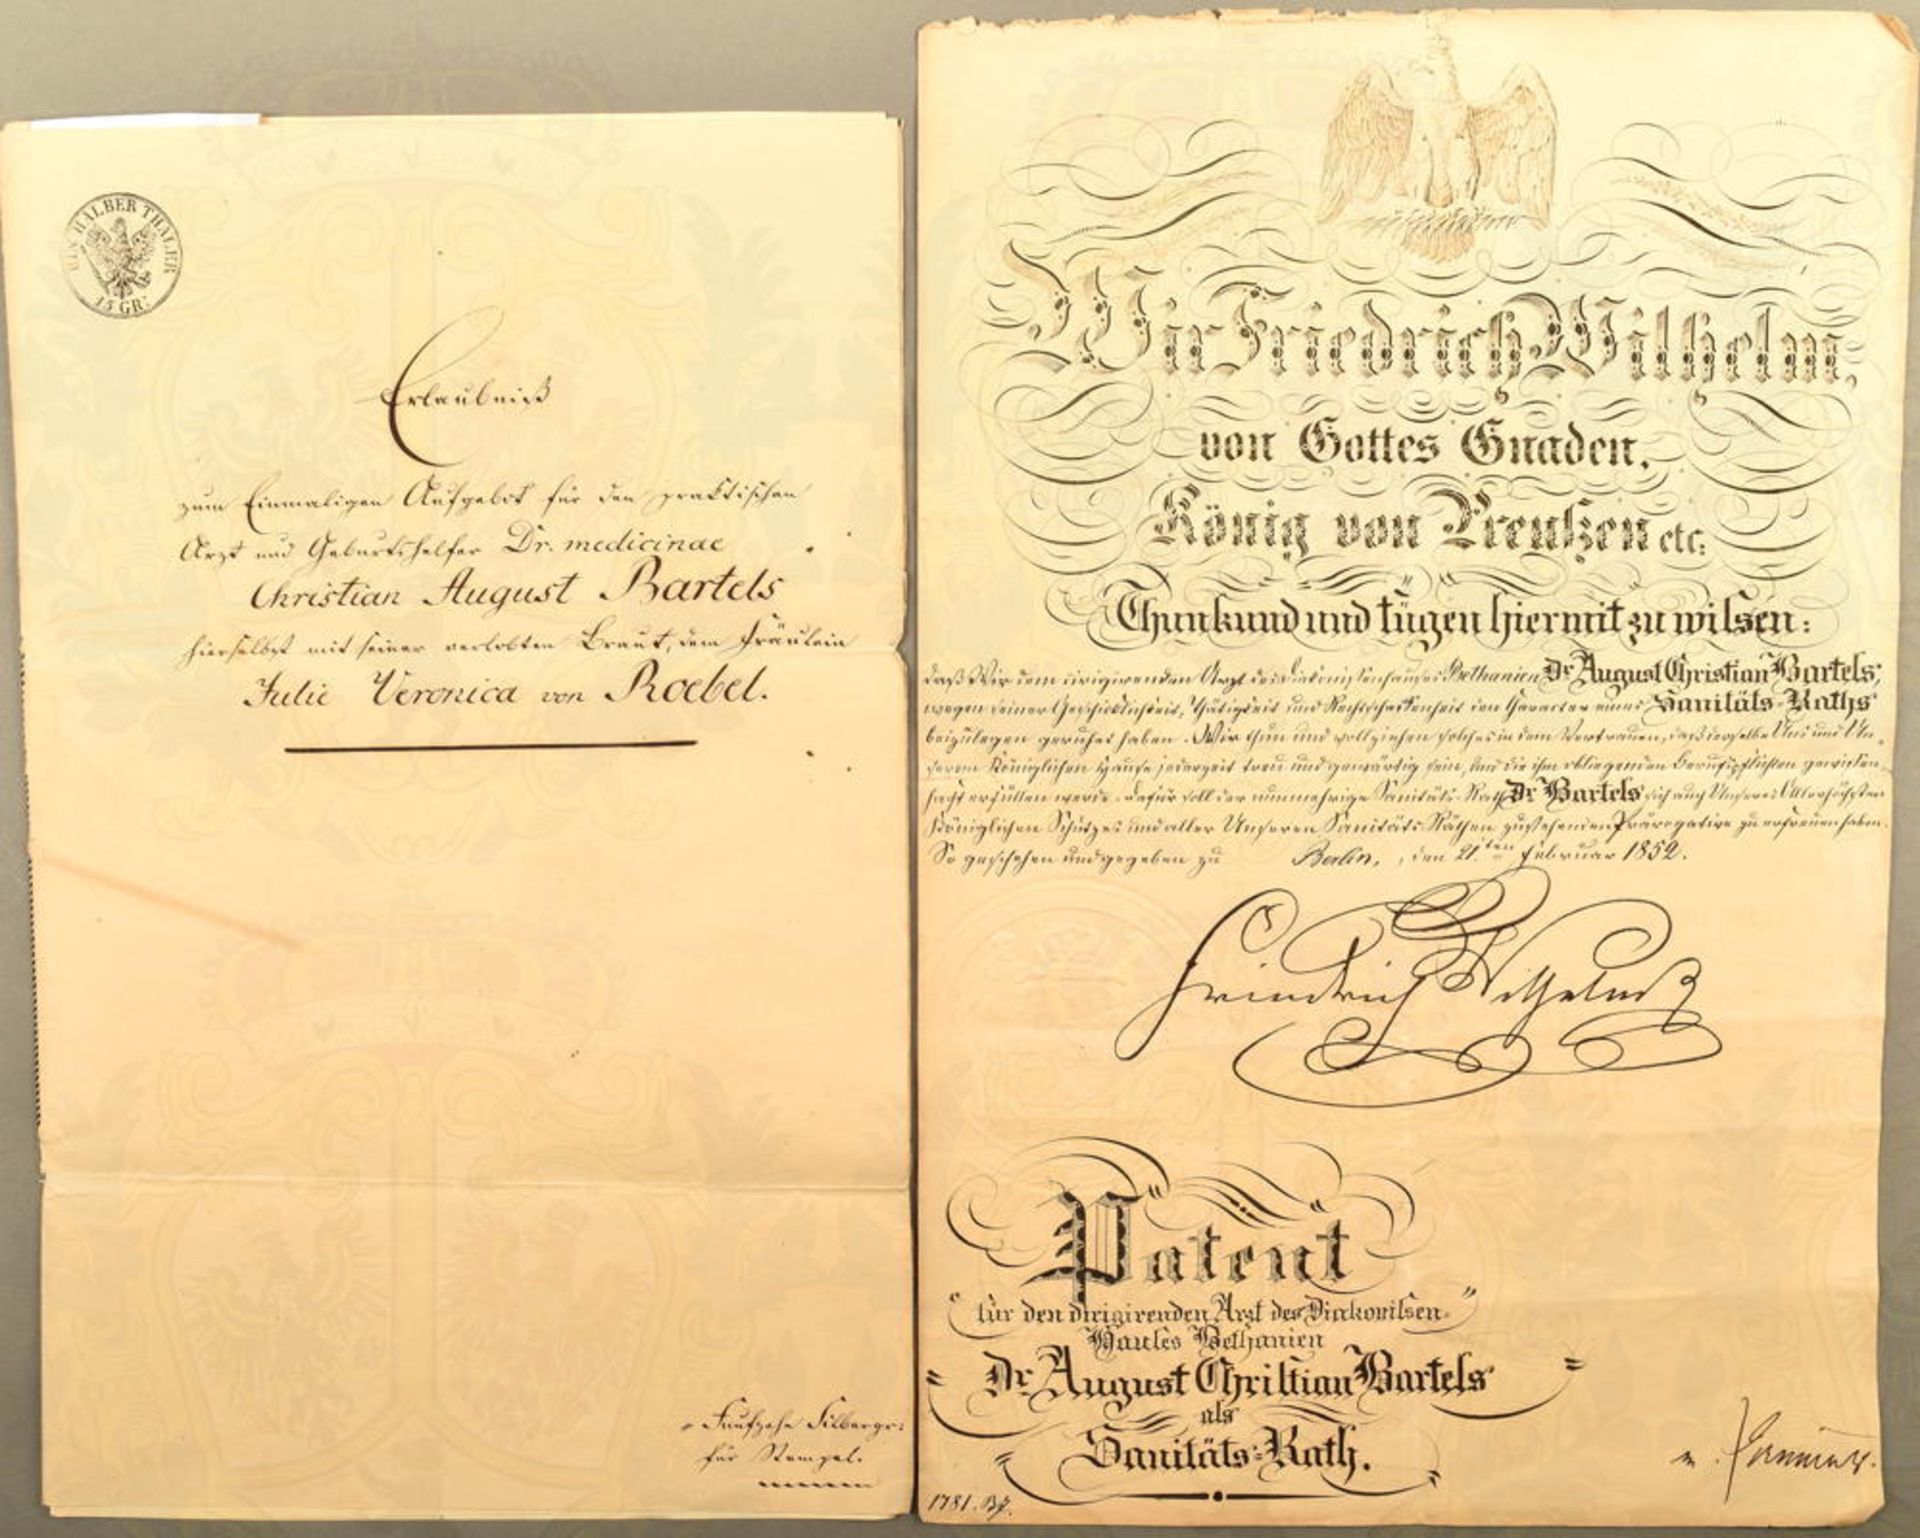 EIN HALBER THALER
15 GR.
Erlaubniß
zum Einmaligen Aufgebot für den praktischen
Arzt und Geburtshelfer Dr. medicinae
Christian August Bartels
hierselbst mit seiner verlobten Braut, dem Fräulein
Julie Veronica von Roebel.
Fünfzehn Silbergr:
für Stempel.
Wir Friedrich Wilhelm,
von Gottes Gnaden,
König von Preußen etc.
Thun kund und fügen hiermit zu wissen:
daß Wir dem dirigirenden Arzt des Diakonissenhauses Bethanien Dr. August Christian Bartels,
wegen seiner Geschicklichkeit, Thätigkeit und Rechtschaffenheit den Character eines Sanitäts-Raths
beizulegen geruhet haben. Wir thun und vollziehen solches in dem Vertrauen, daß derselbe Uns und Un-
serem Königlichen Hause jederzeit treu und gewärtig sein, und die ihm obliegenden Berufspflichten gewissen-
haft erfüllen werde. Dafür soll der nunmehrige Sanitäts-Rath Dr. Bartels sich auch Unseres Allerhöchsten
Königlichen Schutzes und aller Unseren Sanitäts-Räthen zustehenden Prärogative zu erfreuen haben.
So geschehen und gegeben zu Berlin, den 21ten Februar 1852.
Friedrich Wilhelm
Patent
für den dirigirenden Arzt des Diakonissen-
Hauses Bethanien
Dr. August Christian Bartels
als
Sanitäts-Rath.